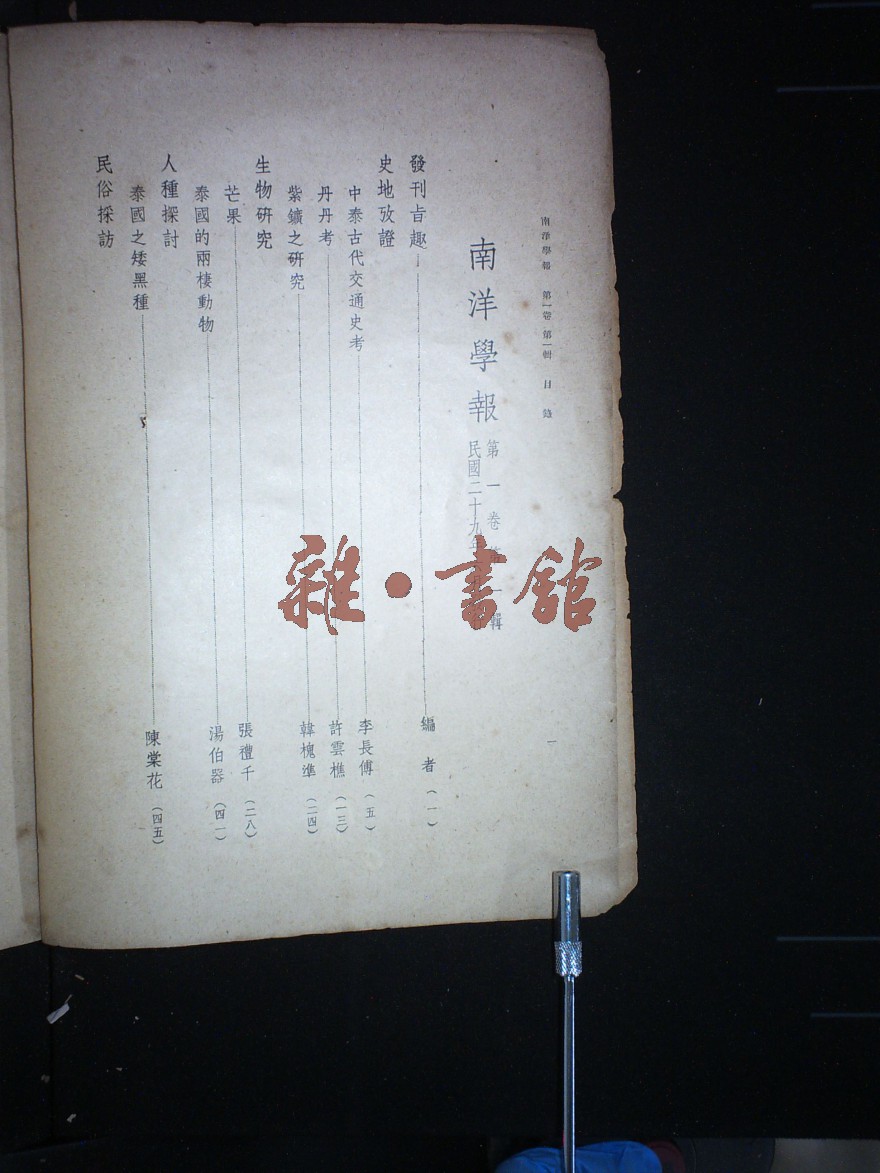 南洋學報 第一卷 第一輯 目錄 一
南洋學報
第一卷 一輯
民國二十九年
發刊旨趣 編者(一)
史地攷證
中泰古代交通史考 李長傅(五)
丹丹考 許雲樵(一三)
紫鑛之研究 韓槐準(二四)
生物研究
芒果 張禮千(二八)
泰國的兩棲動物 湯伯器(四一)
人種探討
泰國之矮黑種 陳棠花(四五)
民俗採訪
雜·書館